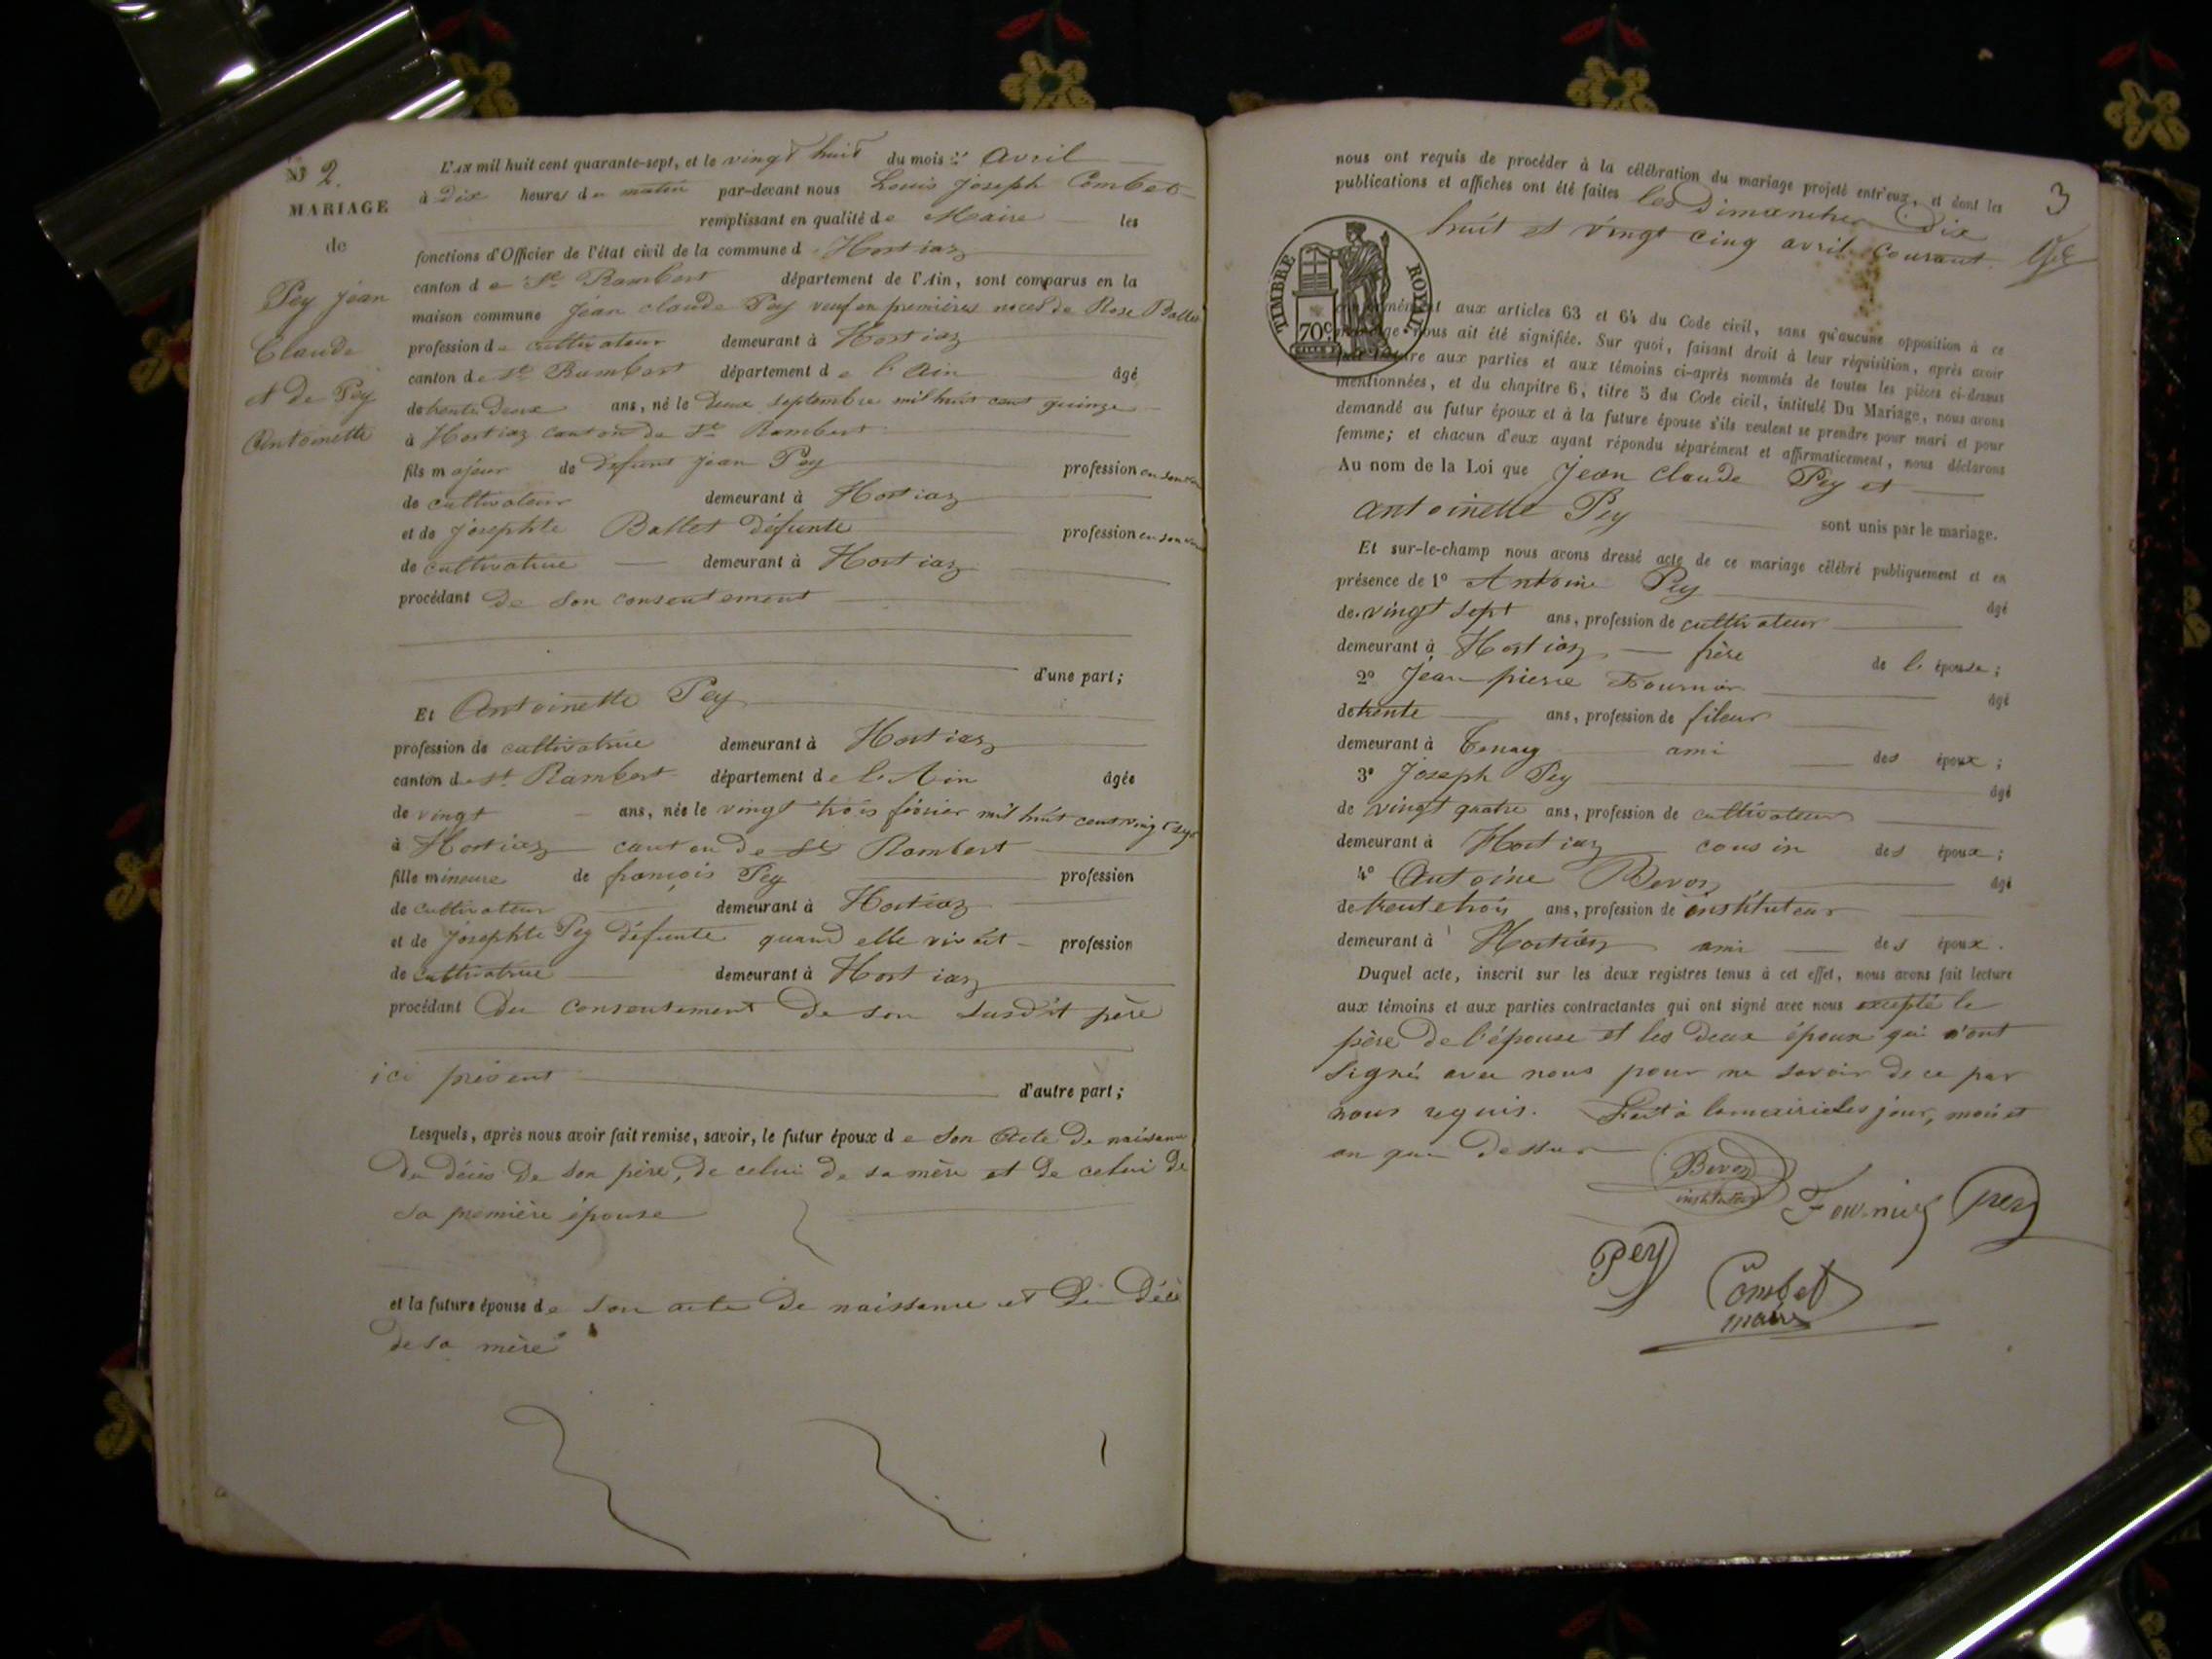 N° 2.
MARIAGE
de
Pey Jean
Claude
et de Pey
Antoinette
L'AN mil huit cent quarante-sept, et le vingt huit du mois d' avril
à dix heures du matin par-devant nous Louis Joseph Combet
remplissant en qualité de Maire les
fonctions d'Officier de l'état civil de la commune d' Hostiaz
canton de St Rambert département de l'Ain, sont comparus en la
maison commune Jean claude Pey veuf en premières noces de Rose Ballet
profession de cultivateur demeurant à Hostiaz
canton de St Rambert département de l'Ain âgé
de trente deux ans, né le deux septembre mil huit cent quinze
à Hostiaz canton de St Rambert
fils majeur de défunt Jean Pey profession en son
de cultivateur demeurant à Hostiaz
et de Josephte Ballet défunte profession en son
de cultivatrice demeurant à Hostiaz
procédant de son consentement
d'une part;
Et Antoinette Pey
profession de cultivatrice demeurant à Hostiaz
canton de St Rambert département de l'Ain âgée
de vingt ans, née le vingt trois février mil huit cent vingt sept
à Hostiaz canton de St Rambert
fille mineure de françois Pey profession
de cultivateur demeurant à Hostiaz
et de Josephte Pey défunte quand elle vivait profession
de cultivatrice demeurant à Hostiaz
procédant du consentement de son susdit père
ici présent
d'autre part;
Lesquels, après nous avoir fait remise, savoir, le futur époux de son acte de naissance
du décès de son père, de celui de sa mère et de celui de
sa première épouse
et la future épouse de son acte de naissance et du décè
de sa mère
3
nous ont requis de procéder à la célébration du mariage projeté entr'eux, et dont les
publications et affiches ont été faites les dimanches dix
huit et vingt cinq avril courant
TIMBRE ROYAL
70c
aux articles 63 et 64 du Code civil, sans qu'aucune opposition à ce
nous ait été signifiée. Sur quoi, faisant droit à leur réquisition, après avoir
aux parties et aux témoins ci-après nommés de toutes les pièces ci-dessus
mentionnées, et du chapitre 6, titre 5 du Code civil, intitulé Du Mariage, nous avons
demandé au futur époux et à la future épouse s'ils veulent se prendre pour mari et pour
femme; et chacun d'eux ayant répondu séparément et affirmativement, nous déclarons
Au nom de la Loi que Jean Claude Pey et
Antoinette Pey sont unis par le mariage.
Et sur-le-champ nous avons dressé acte de ce mariage célébré publiquement et en
présence de 1° Antoine Pey âgé
de vingt sept ans, profession de cultivateur
demeurant à Hostiaz frère de l' épouse;
2° Jean pierre Fournier âgé
de trente ans, profession de fileur
demeurant à Tenay ami des époux;
3° Joseph Pey âgé
de vingt quatre ans, profession de cultivateur
demeurant à Hostiaz cousin des époux;
4° Antoine Bevoz âgé
de trente trois ans, profession de instituteur
demeurant à Hostiaz ami des époux.
Duquel acte, inscrit sur les deux registres tenus à cet effet, nous avons fait lecture
aux témoins et aux parties contractantes qui ont signé avec nous excepté le
père de l'épouse et les deux époux qui n'ont
signé avec nous pour ne savoir de ce par
nous requis. Fait à la mairie les jour, mois et
an que dessus
Bevoz
instituteur
Fournier
Pey
Pey
Combet
maire